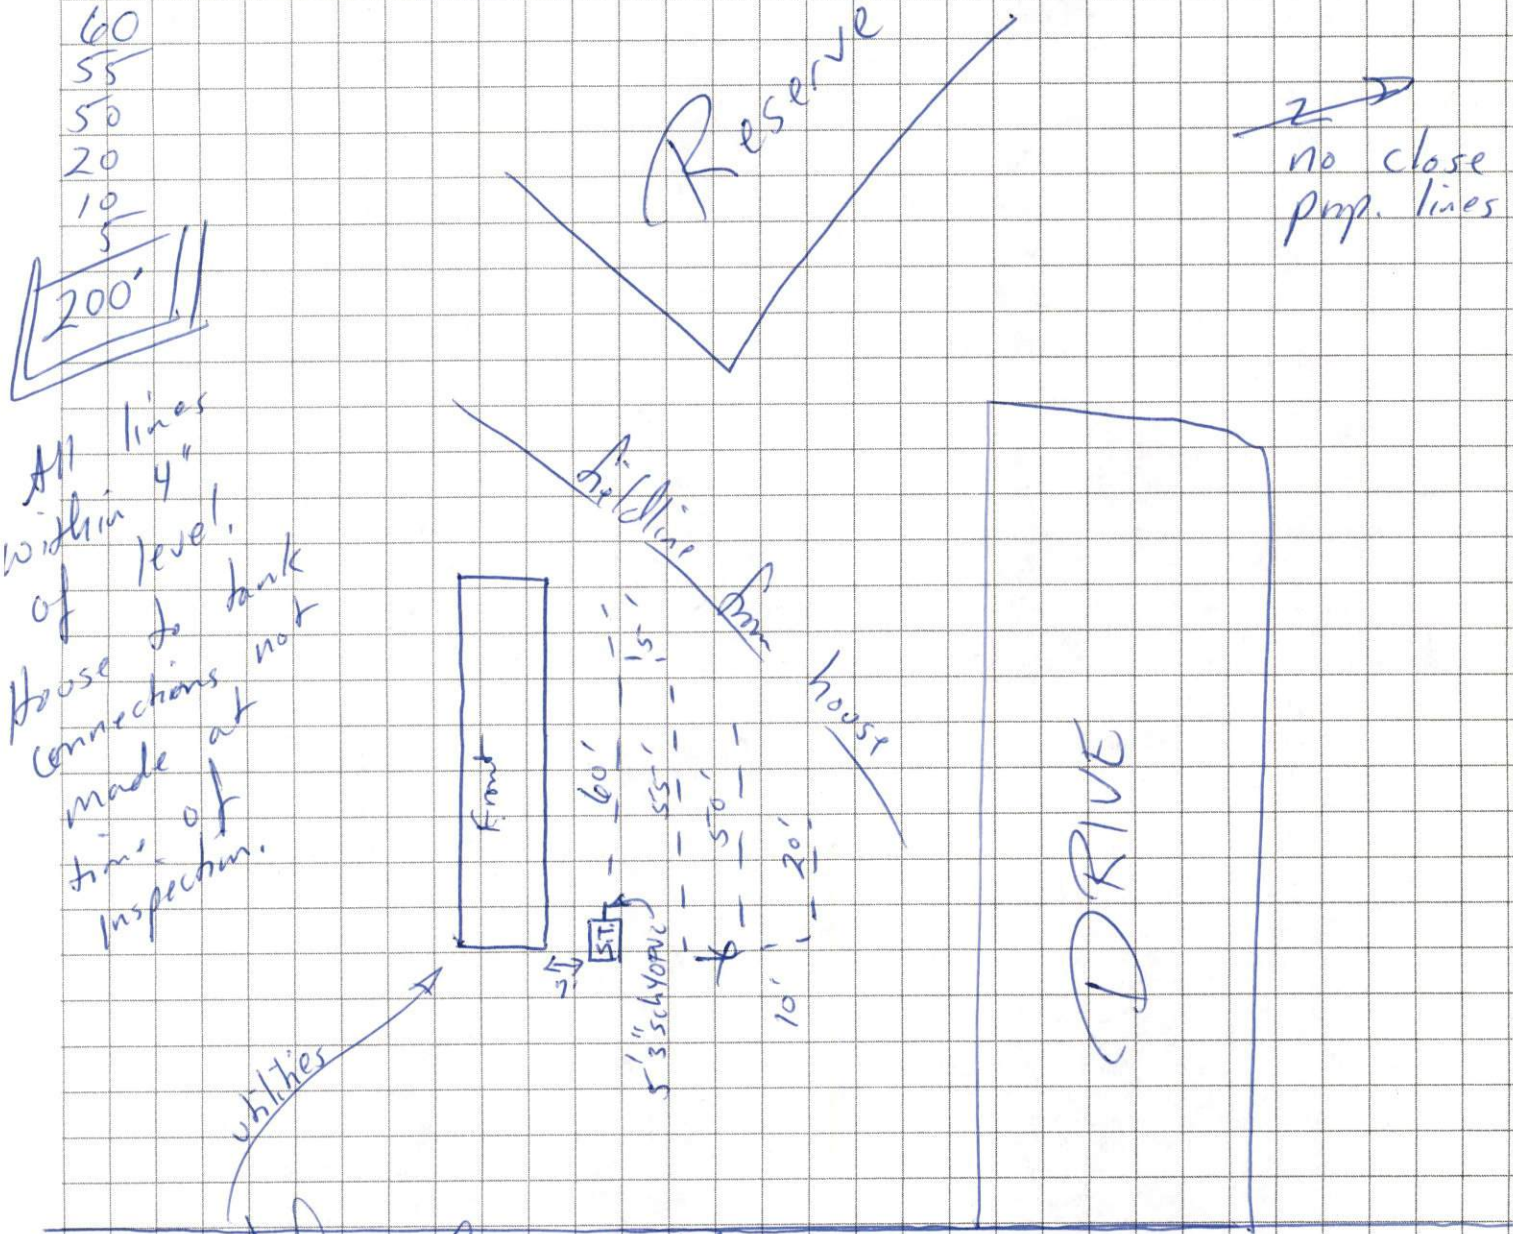 60
55
50
20
10
5
200'
Reserve
N
no close
prop. lines
All lines
within 4"
of level.
House to tank
connections not
made at
time of
inspection.
fieldline from house
Front
5'
60'
55'
50'
20'
10'
S.T.
5' 3" sch40PVC
utilities
DRIVE